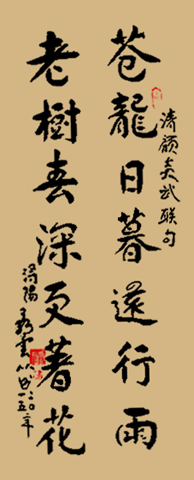 苍龍日暮还行雨
老樹春深更著花
清顾炎武联句
浔陽
二〇一五年